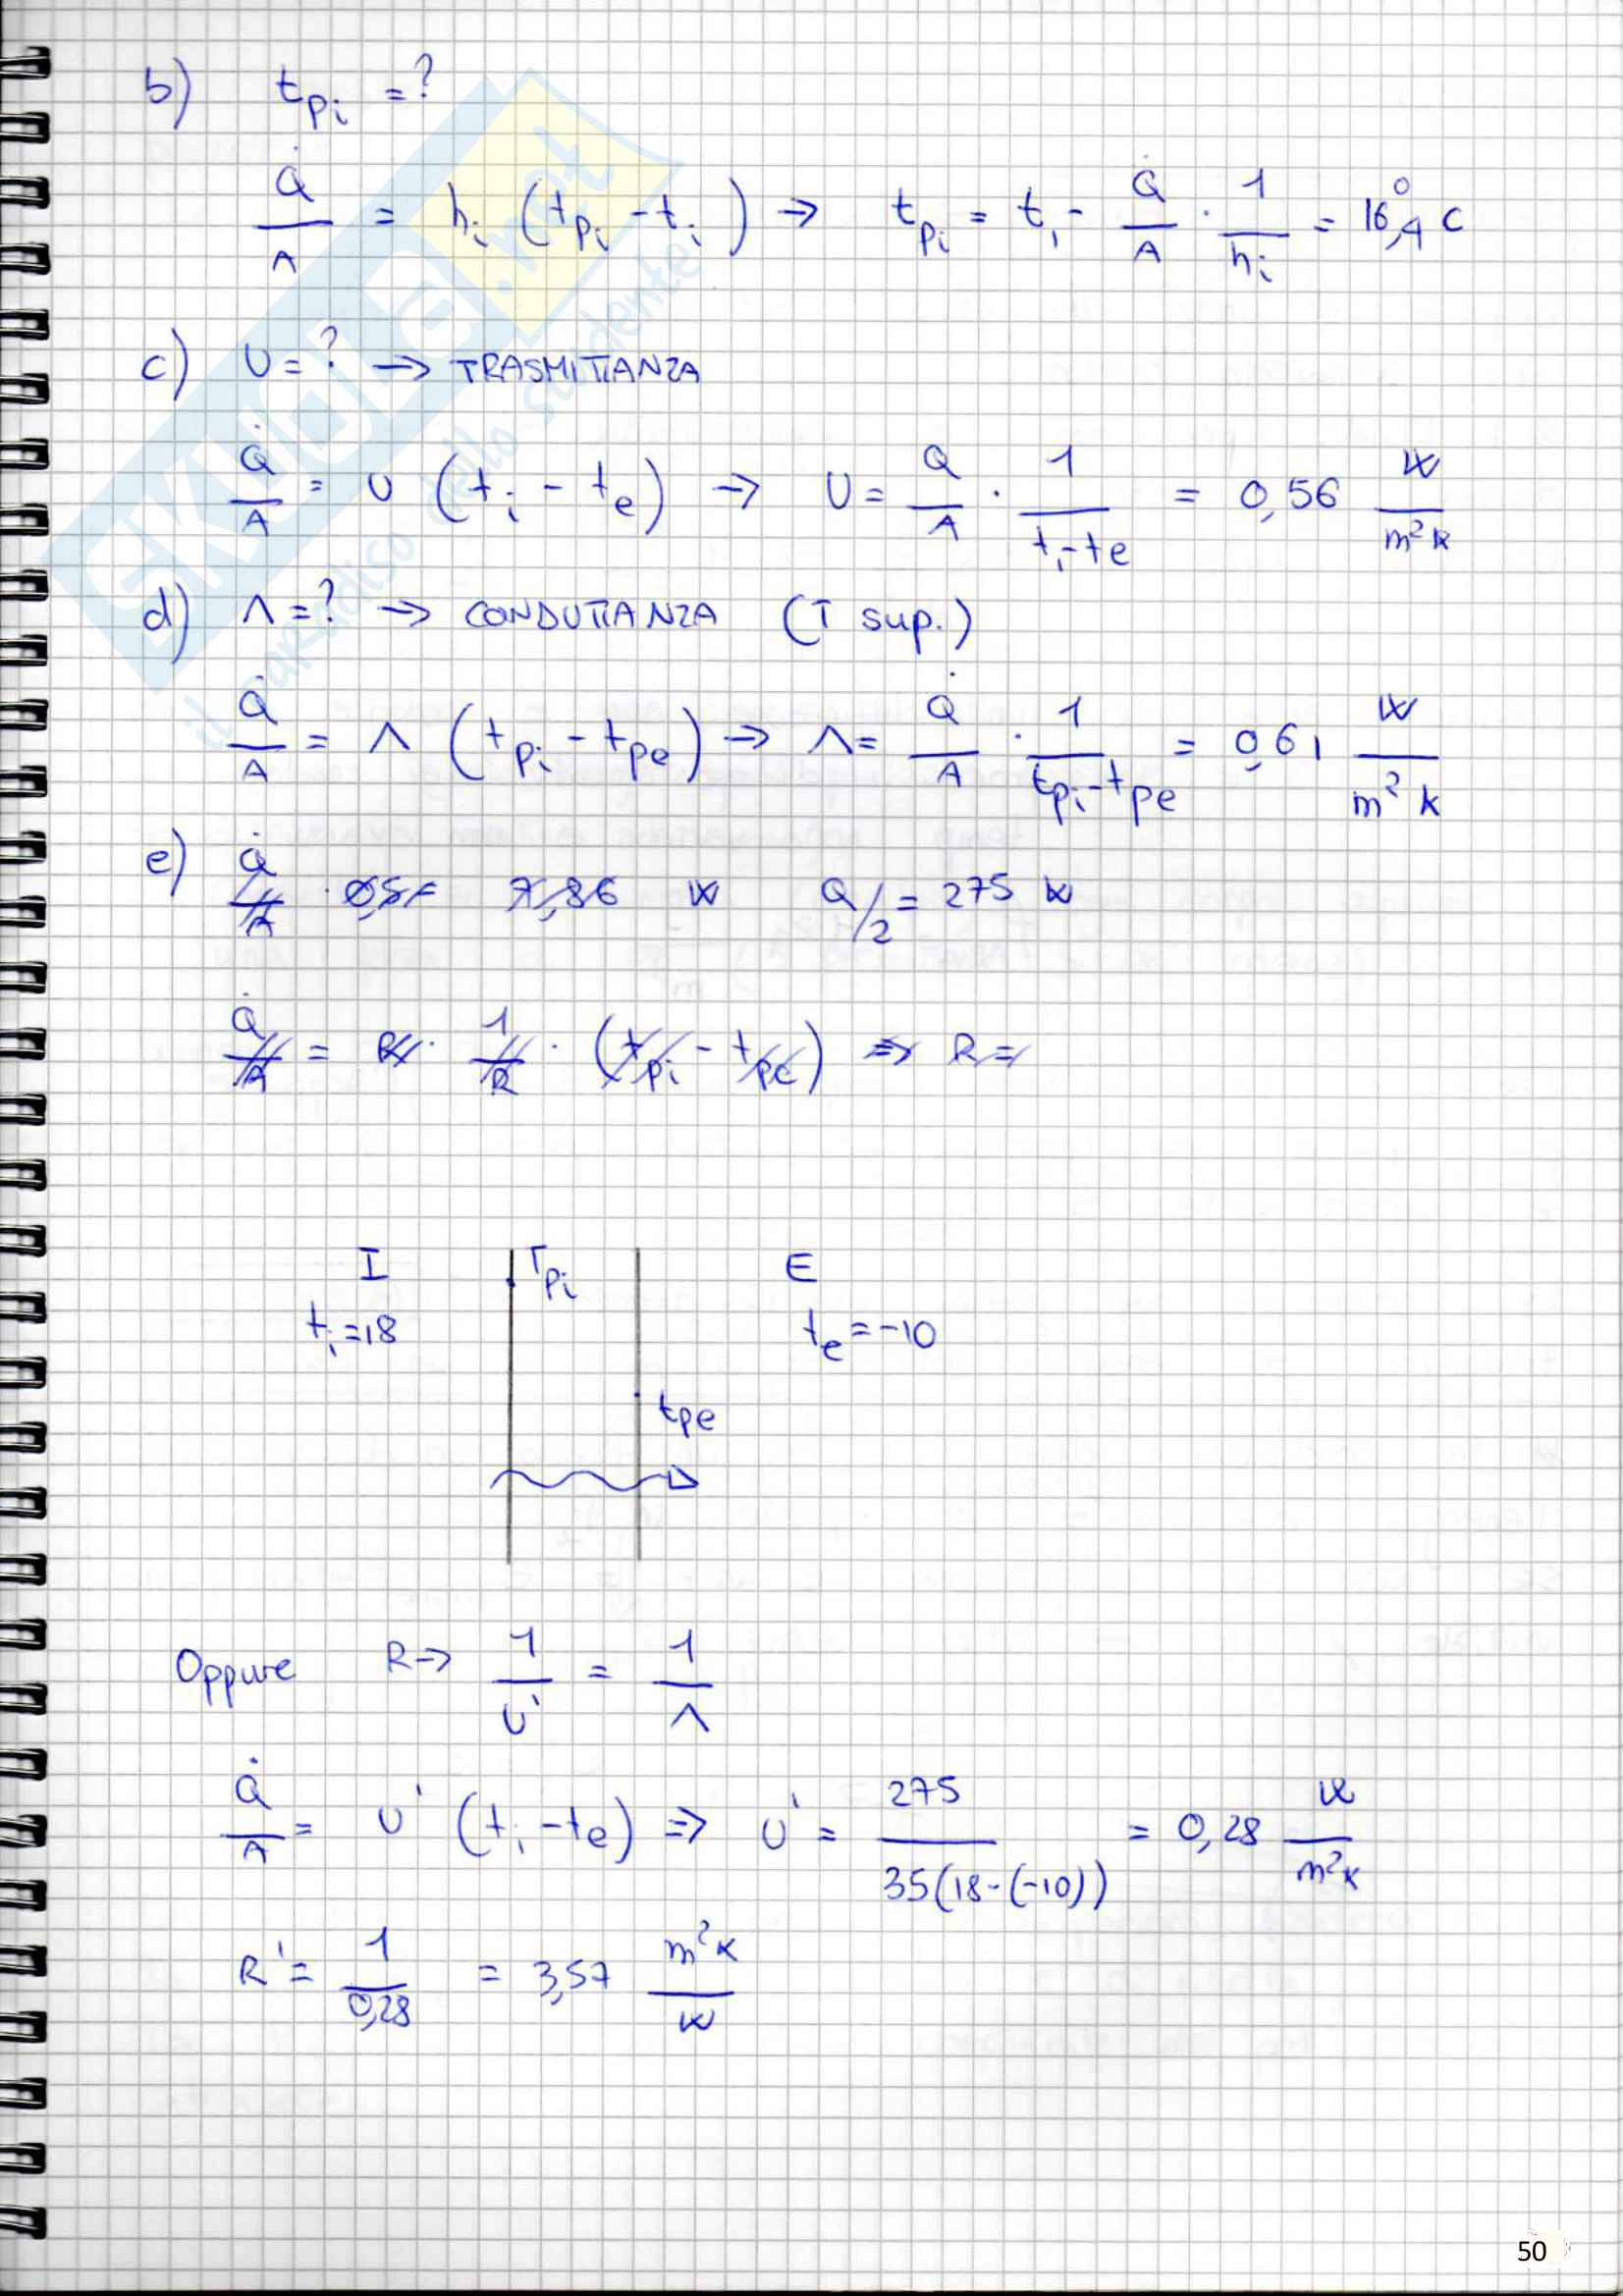 b) t_pi = ?
Q̇/A = h_i (t_pi - t_i) → t_pi = t_i - Q̇/A · 1/h_i = 16,4 °C
c) U = ? → TRASMITTANZA
Q̇/A = U (t_i - t_e) → U = Q/A · 1/(t_i - t_e) = 0,56 W/m²K
d) Λ = ? → CONDUTTANZA (T sup.)
Q̇/A = Λ (t_pi - t_pe) → Λ = Q̇/A · 1/(t_pi - t_pe) = 0,61 W/m²K
e) Q̇/A · W Q/2 = 275 W
Q̇/A = · 1/R · (t_pi - t_pe) ⇒ R =
I T_pi E
t_i = 18 t_e = -10
t_pe
Oppure R → 1/U' = 1/Λ
Q̇/A = U' (t_i - t_e) ⇒ U' = 275/35(18-(-10)) = 0,28 W/m²K
R' = 1/0,28 = 3,57 m²K/W
50
SKUOLA.net
il paradiso dello studente